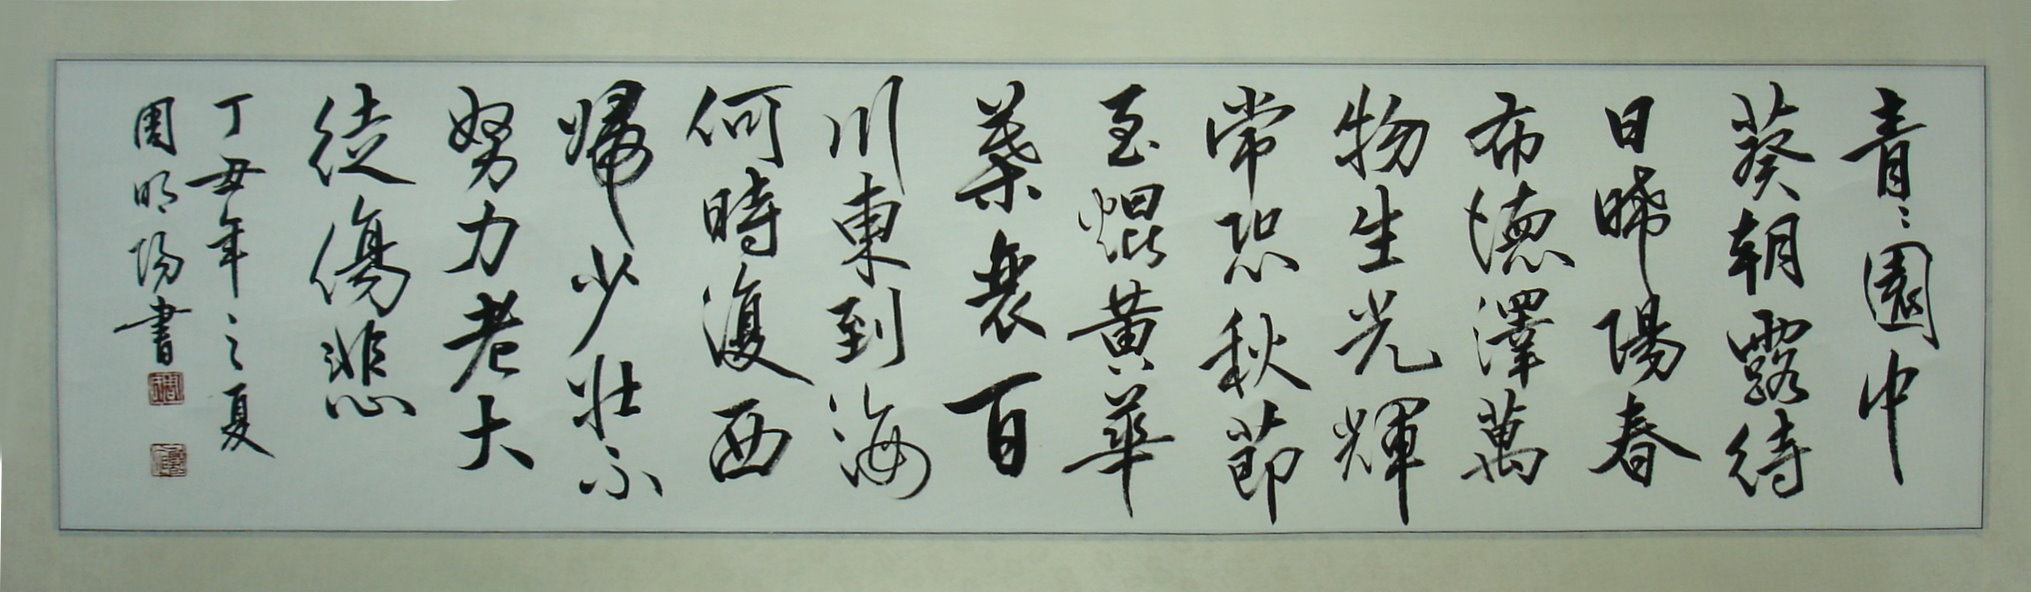 青〻園中
葵朝露待
日晞陽春
布德澤萬
物生光輝
常恐秋節
至焜黃華
葉衰百
川東到海
何時復西
歸少壯不
努力老大
徒傷悲
丁丑年之夏
周明陽書